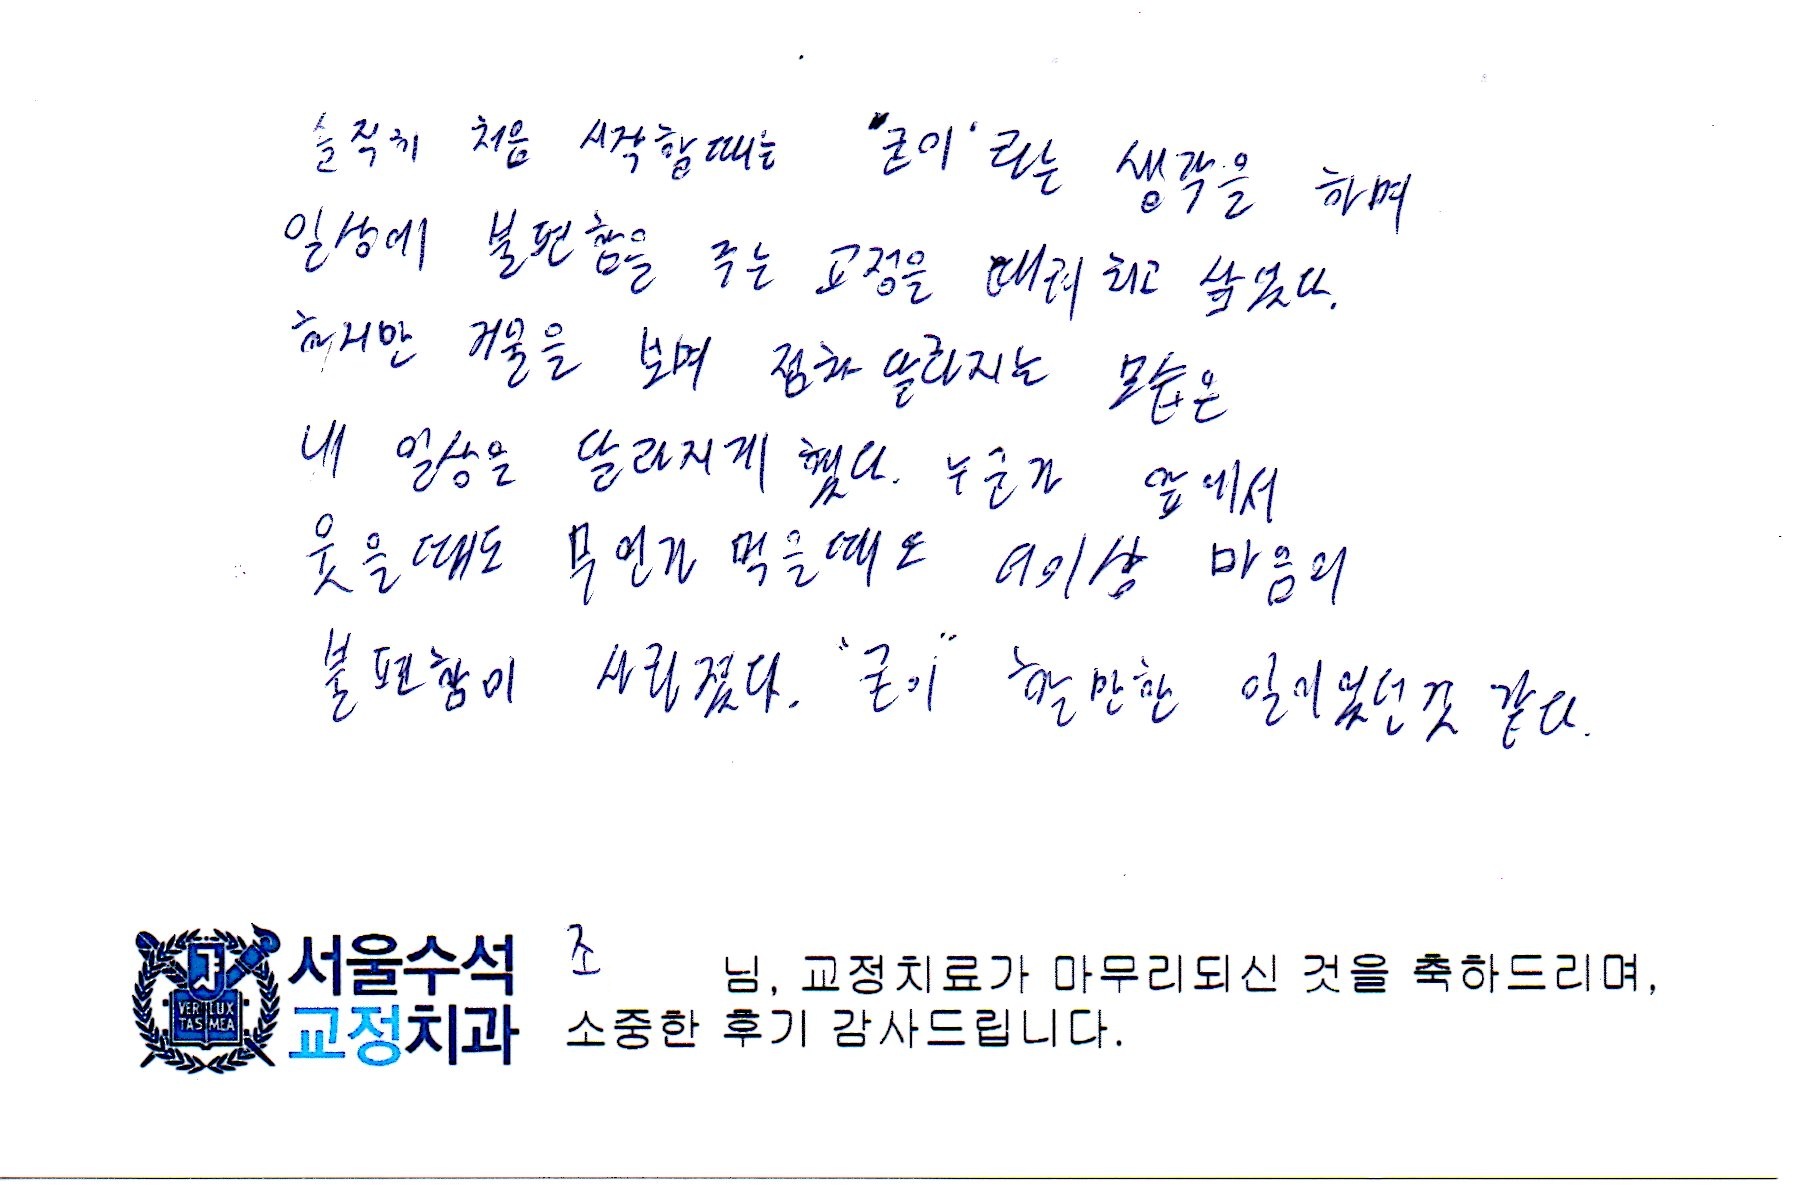 솔직히 처음 시작할때는 "굳이"라는 생각을 하며
일상에 불편함을 주는 교정을 때려치고 싶었다.
하지만 거울을 보며 점차 달라지는 모습은
내 일상을 달라지게 했다. 누군가 앞에서
웃을때도 무언가 먹을때도 더이상 마음의
불편함이 사라졌다. "굳이" 할만한 일이었던것 같다.
서울수석
교정치과
VERI LUX
TAS MEA
조 님, 교정치료가 마무리되신 것을 축하드리며,
소중한 후기 감사드립니다.